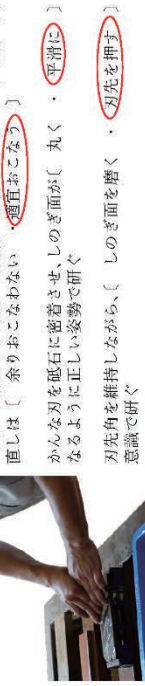 直しは〔 余りおこなわない ・ 適宜おこなう 〕
かんな刃を砥石に密着させ、しのぎ面が〔 丸く ・ 平滑に 〕
なるように正しい姿勢で研ぐ
刃先角を維持しながら、〔 しのぎ面を磨く ・ 刃先を押す 〕
意識で研ぐ